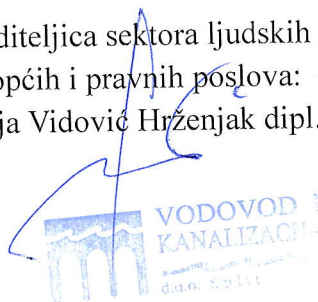 diteljica sektora ljudskih
općih i pravnih poslova:
ja Vidović Hrženjak dipl.
VODOVOD I
KANALIZACI
d.o.o. Split